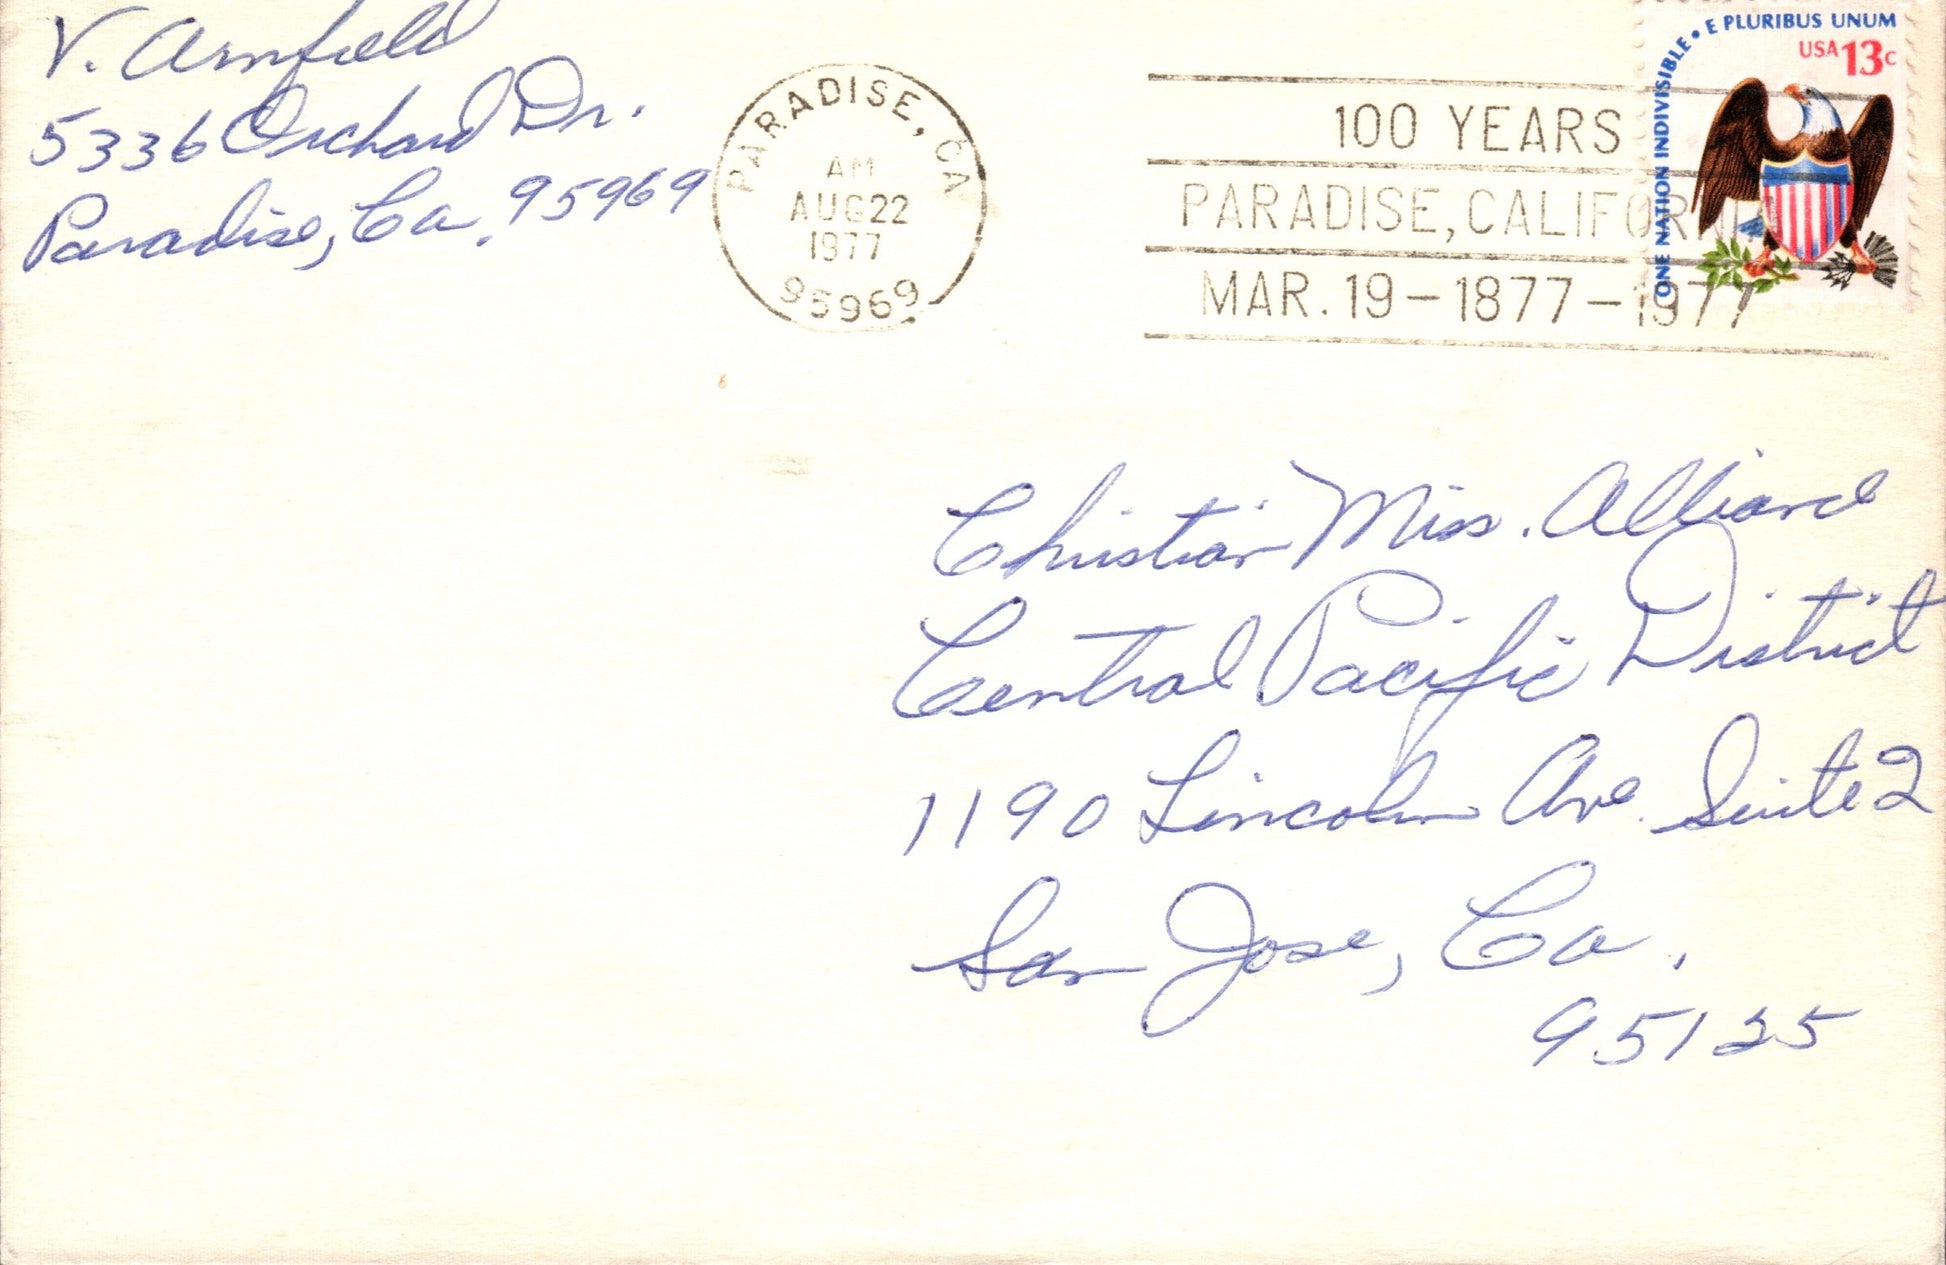 V. Arnfield
5336 Orchard Dr.
Paradise, Ca. 95969
PARADISE, CA
AM
AUG 22
1977
95969
100 YEARS
PARADISE, CALIFORNIA
MAR. 19 - 1877 - 1977
ONE NATION INDIVISIBLE • E PLURIBUS UNUM
USA 13c
Christian Miss. Alliance
Central Pacific District
1190 Lincoln Ave. Suite 2
San Jose, Ca.
95125